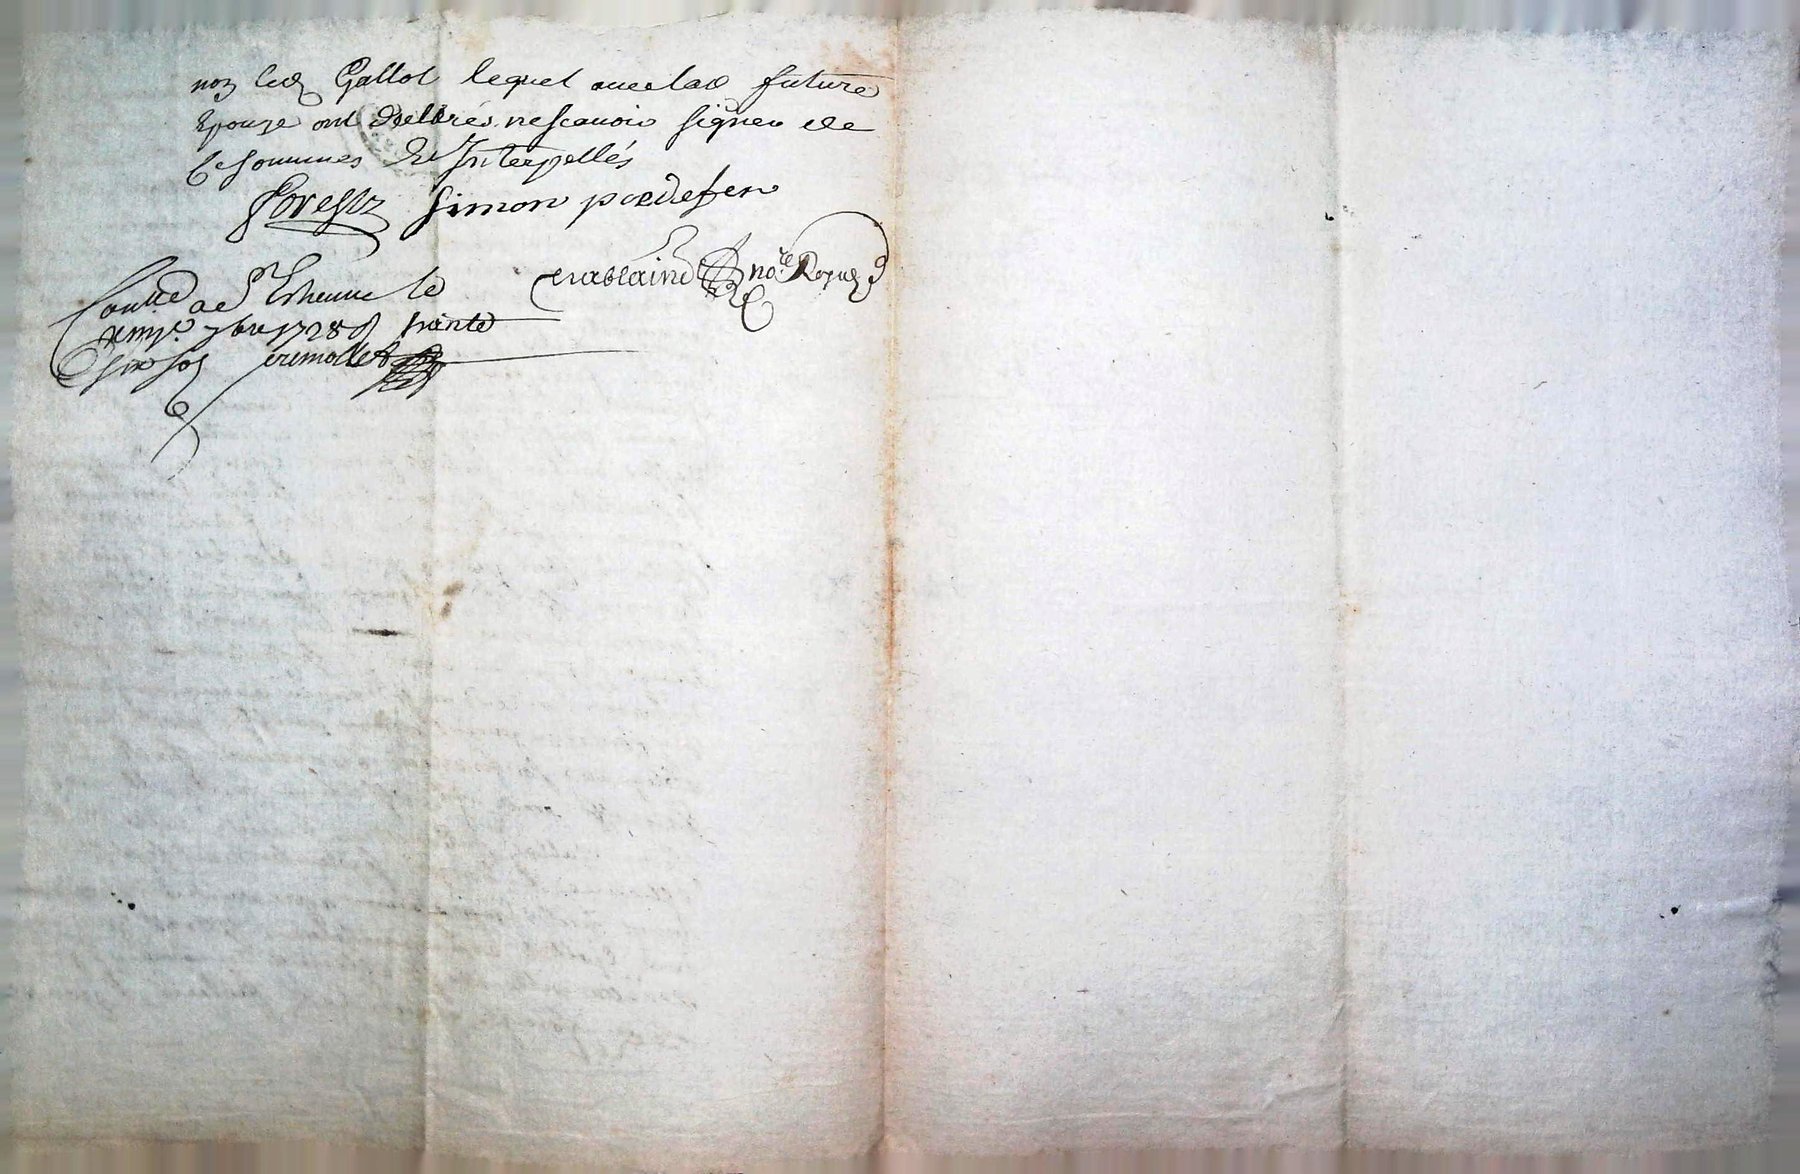 non led Gallot lequel avec lad future
Epouze ont declarés ne scavoir signer de
Ce sommes Et Interpellés
Forest Simon pordefer
Chablaine no.re Royal
Contlé a St Etienne le
7bre 1728 trante
six sols